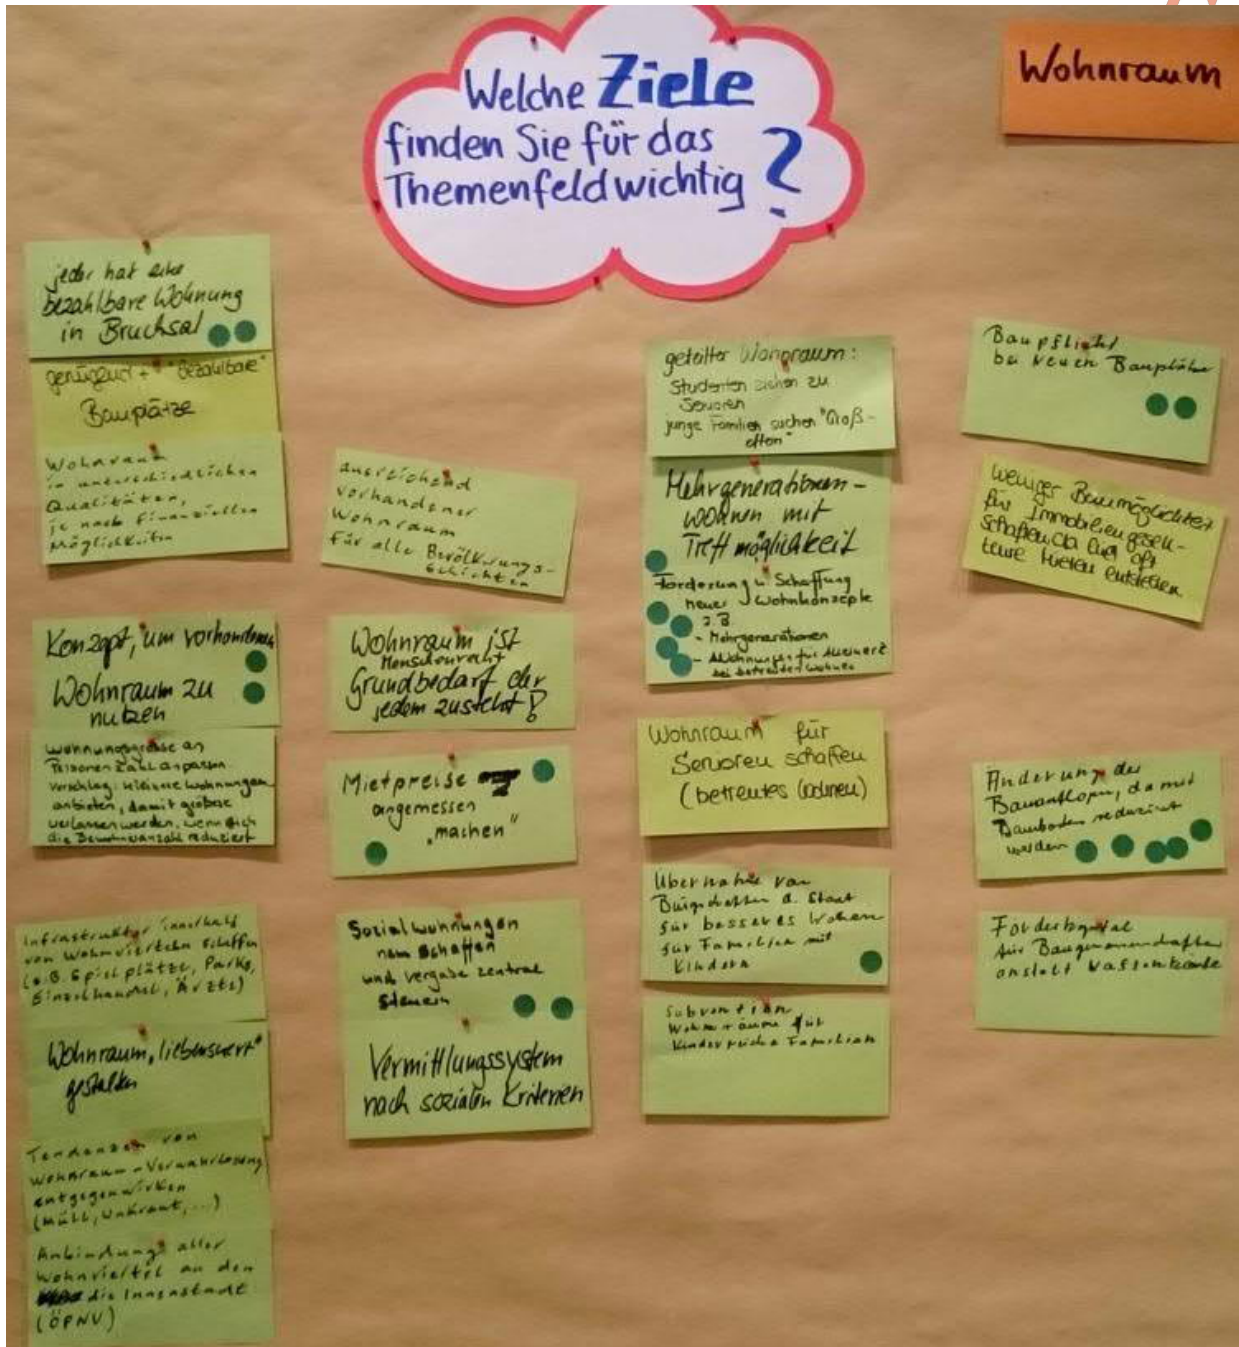 Welche Ziele
finden Sie für das
Themenfeld wichtig ?
Wohnraum
jeder hat eine
bezahlbare Wohnung
in Bruchsal
genügend + "Bezahlbare"
Bauplätze
Wohnraum
in unterschiedlichen
Qualitäten,
je nach finanziellen
Möglichkeiten
Konzept, um vorhandenen
Wohnraum zu
nutzen
Wohnungsgrösse an
Personenzahl anpassen
Vorschlag: kleinere Wohnungen
anbieten, damit größere
verlassen werden, wenn sich
die Bewohneranzahl reduziert
Infrastruktur innerhalb
von Wohnvierteln schaffen
(z.B. Spielplätze, Parks,
Einzelhandel, Ärzte)
Wohnraum „liebenswert“
gestalten
Tendenzen von
Wohnraum-Verwahrlosung
entgegenwirken
(Müll, Unkraut, ...)
Anbindung aller
Wohnviertel an den
die Innenstadt
(ÖPNV)
ausreichend
vorhandener
Wohnraum
für alle Bevölkerungs-
schichten
Wohnraum ist
Menschenrecht
Grundbedarf der
jedem zusteht!
Mietpreise
angemessen
„machen"
Sozialwohnungen
neu schaffen
und vergabe zentral
steuern
Vermittlungssystem
nach sozialen Kriterien
geteilter Wohnraum:
Studenten ziehen zu
Senioren
junge Familien suchen "Groß-
eltern"
Mehrgenerationen-
wohnen mit
Treffmöglichkeit
Förderung u. Schaffung
neuer Wohnkonzepte
z.B
- Mehrgenerationen
- Wohnungen für
bei betreuten Wohnen
Wohnraum für
Senioren schaffen
(betreutes Wohnen)
Übernahme von
Bürgschaften d. Staat
für besseres Wohnen
für Familien mit
Kindern
Subvention
Wohnräume für
Kinderreiche Familien
Baupflicht
bei Neuen Bauplätzen
Weniger Baumöglichkeit
für Immobiliengesell-
schaften da hier oft
teure Mieten entstehen
Änderung der
Bauauflagen, damit
Baukosten reduziert
werden
Förderung
für Baugenossenschaften
anstatt